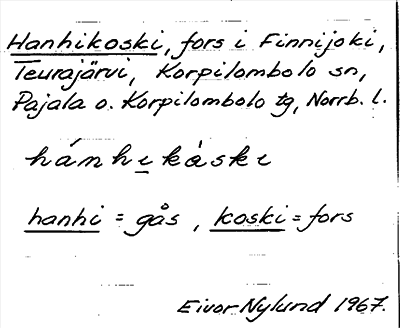 Hanhikoski, fors i Finnijoki,
Teurajärvi, Korpilombolo sn,
Pajala o. Korpilombolo tg, Norrb. l.
hámhı̱kȧskı
hanhi = gås, koski = fors
Eivor Nylund 1967.